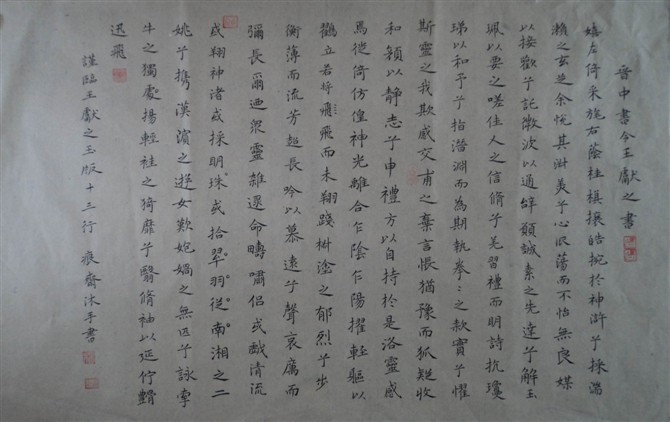 晉中書令王獻之書
嬉左倚采旄右蔭桂旗攘皓捥於神滸兮採湍
瀨之玄芝余悅其淑美兮心振蕩而不怡無良媒
以接歡兮託微波以通辭願誠素之先達兮解玉
珮以要之嗟佳人之信脩兮羌習禮而明詩抗瓊
珶以和予兮指潛淵而為期執拳〻之款實兮懼
斯靈之我欺感交甫之棄言悵猶豫而狐疑收
和顏以靜志兮申禮方以自持於是洛靈感
焉徙倚仿偟神光離合乍陰乍陽擢輕軀以
鶴立若將飛飛而未翔踐椒塗之郁烈兮步
衡薄而流芳超長吟以慕遠兮聲哀厲而
彌長爾迺眾靈雜遝命疇嘯侶或戲清流
或翔神渚或採明珠或拾翠羽從南湘之二
姚兮攜漢濱之遊女歎匏媧之無匹兮詠牽
牛之獨處揚輕袿之猗靡兮翳脩袖以延佇體
迅飛
謹臨王獻之玉版十三行 痕齋沐手書